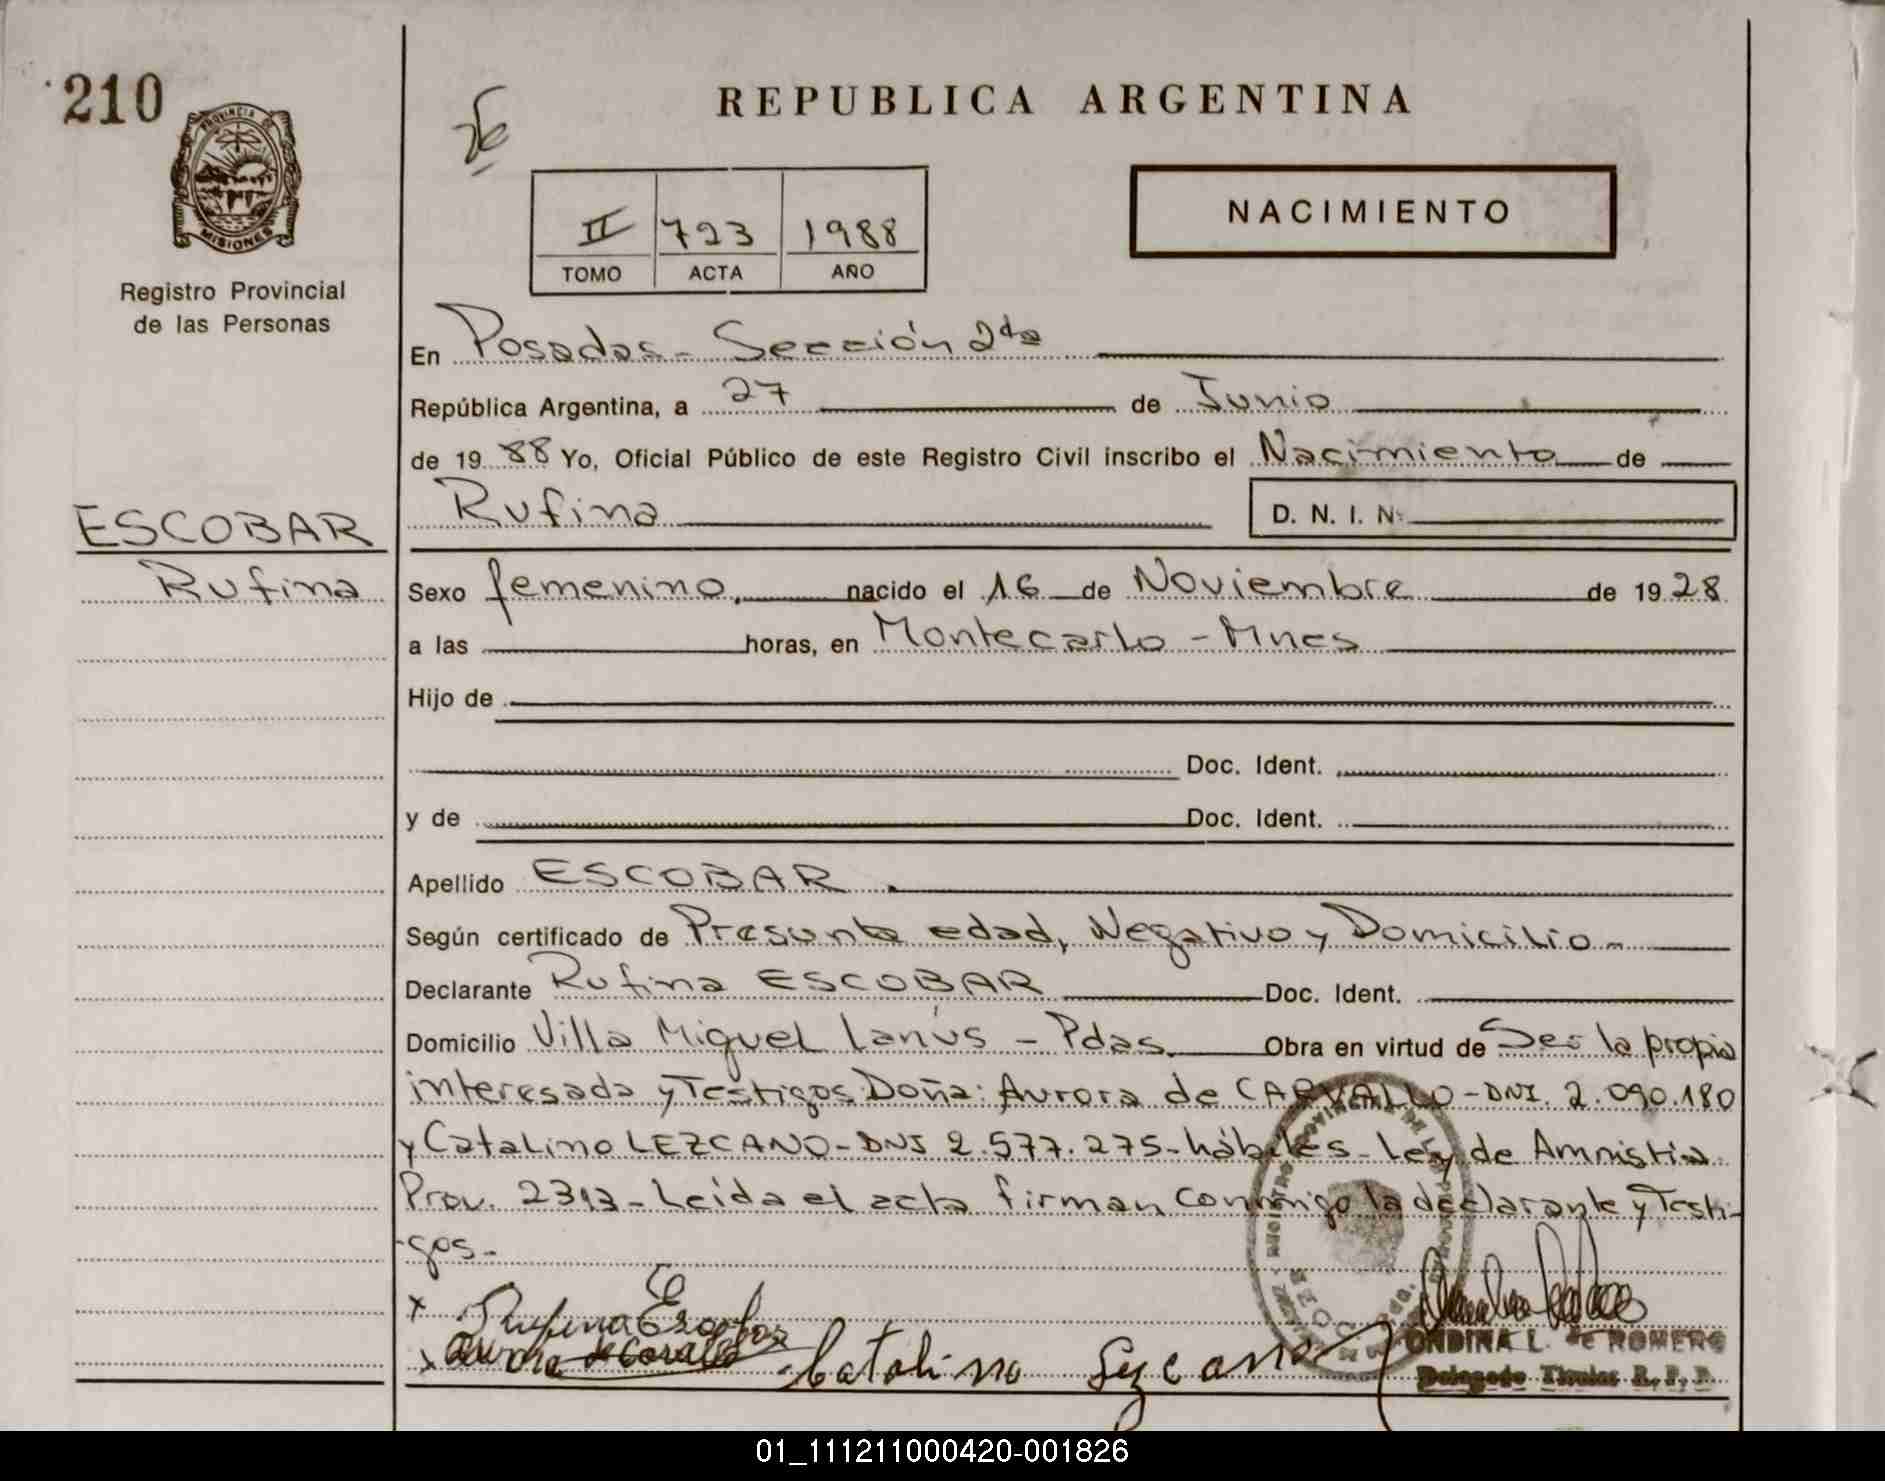 210
REPUBLICA ARGENTINA
PROVINCIA DE
MISIONES
Registro Provincial
de las Personas
II 723 1988
TOMO ACTA AÑO
NACIMIENTO
En Posadas - Sección 2da
República Argentina, a 27 de Junio
de 1988 Yo, Oficial Público de este Registro Civil inscribo el Nacimiento de
Rufina
D. N. I. Nº
ESCOBAR
Rufina
Sexo femenino, nacido el 16 de Noviembre de 1928
a las horas, en Montecarlo - Mnes
Hijo de
Doc. Ident.
y de Doc. Ident.
Apellido ESCOBAR.
Según certificado de Presunta edad, Negativo y Domicilio -
Declarante Rufina ESCOBAR Doc. Ident.
Domicilio Villa Miguel Lanús - Pdas. Obra en virtud de Ser la propia
interesada y Testigos Doña: Aurora de CARVALLO - DNI. 2.090.180
y Catalino LEZCANO - DNI 2.577.275 - hábiles - Ley de Amnistía
Prov. 2313 - Leída el acta firman conmigo la declarante y Testi-
-gos -
x Rufina Escobar
x Aurora de Carvallo Catalino Lezcano
ONDINA L. de ROMERO
Delegado Titular R. P. P.
01_111211000420-001826